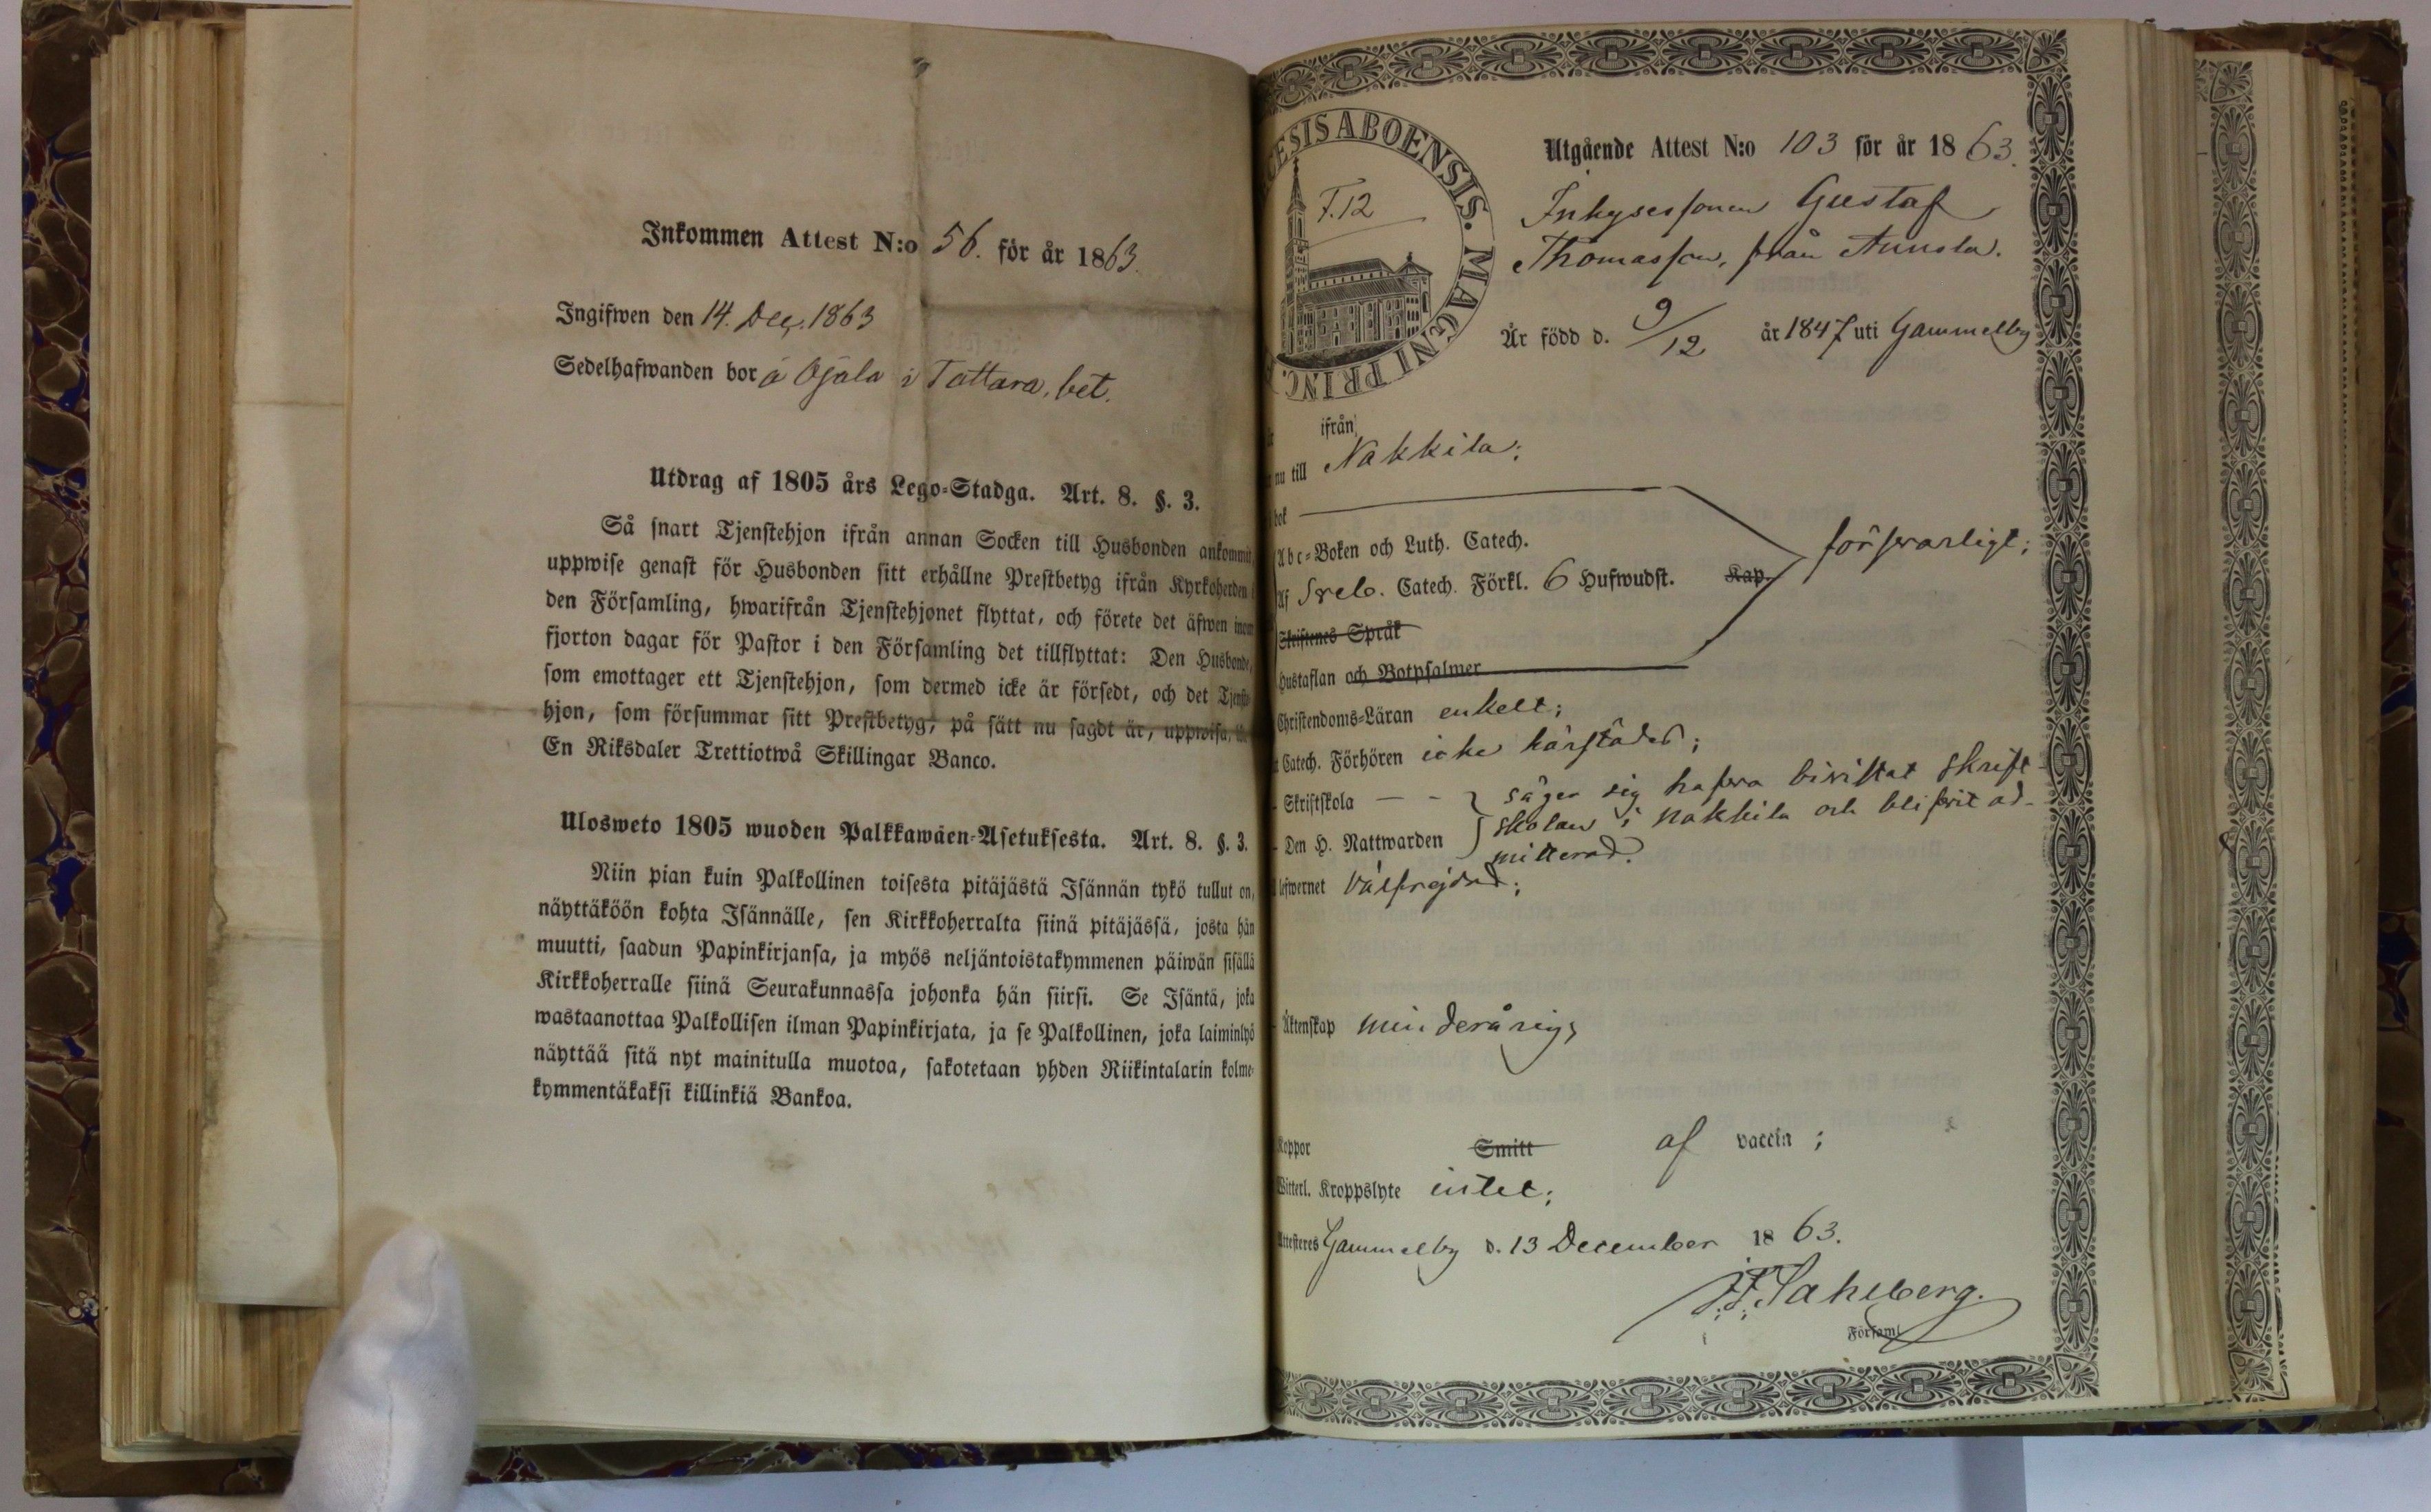 Inkommen Attest N:o 56. för år 1863.
Ingifwen den 14. Dec. 1863
Sedelhafwanden bor å Ojala i Tattara, bet.
Utdrag af 1805 års Lego-Stadga. Art. 8. §. 3.
Så snart Tjenstehjon ifrån annan Socken till Husbonden ankommit,
uppwise genast för Husbonden sitt erhållne Prestbetyg ifrån Kyrkoherden i
den Församling, hwarifrån Tjenstehjonet flyttat, och förete det äfwen inom
fjorton dagar för Pastor i den Församling det tillflyttat: Den Husbonde,
som emottager ett Tjenstehjon, som dermed icke är försedt, och det Tjenste-
hjon, som försummar sitt Prestbetyg, på sätt nu sagdt är, uppwisa,
En Riksdaler Trettiotwå Skillingar Banco.
Ulosweto 1805 wuoden Palkkawäen-Asetuksesta. Art. 8. §. 3.
Niin pian kuin Palkollinen toisesta pitäjästä Isännän tykö tullut on,
näyttäköön kohta Isännälle, sen Kirkkoherralta siinä pitäjässä, josta hän
muutti, saadun Papinkirjansa, ja myös neljäntoistakymmenen päiwän sisällä
Kirkkoherralle siinä Seurakunnassa johonka hän siirsi. Se Isäntä, joka
wastaanottaa Palkollisen ilman Papinkirjata, ja se Palkollinen, joka laiminlyö
näyttää sitä nyt mainitulla muotoa, sakotetaan yhden Riikintalarin kolme-
kymmentäkaksi killinkiä Bankoa.
ESIS ABOENSIS. MAGNI PRINC.
F. 12
Utgående Attest N:o 103 för år 1863.
Inhysessonen Gustaf
Thomasson, från Annola.
Är född d. 9/12 år 1847 uti Gammelby
ifrån
nu till Nakkila;
bok
Abc-Boken och Luth. Catech.
Af Sveb. Catech. Förkl. 6 Hufwudst. Kap. försvarligt;
Skriftenes Språk
Hustaflan och Botpsalmer
Christendoms-Läran enkelt;
Catech. Förhören icke härstädes;
Skriftskola — - säger sig hafva bivistat Skrift-
Den H. Nattwarden skolan i Nakkila och blifvit ad-
mitterad.
lefwernet välfrejdad;
Äktenskap minderårig;
Koppor Smitt af vaccin;
Witterl. Kroppslyte intet;
Attesteres Gammelby d. 13 December 1863.
J. F. Sahlberg.
Församl